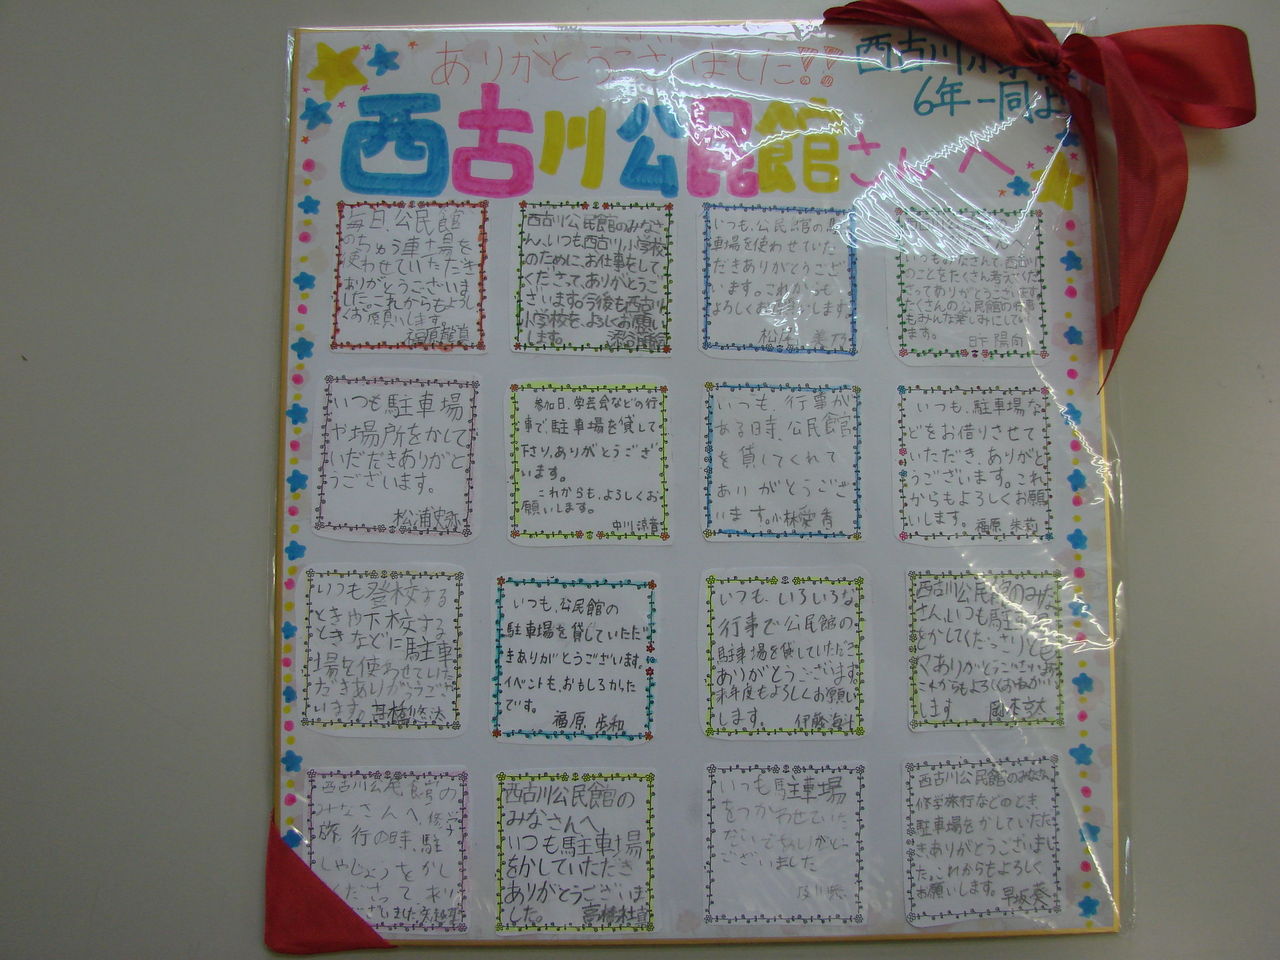 ありがとうございました!!
西古川小学校
6年一同より
西古川公民館さんへ
毎日、公民館
のちゅう車場を
使わせていただき
ありがとうございま
した。これからもよろし
くお願いします。
福原
西古川公民館のみなさ
ん、いつも西古川小学校
のために、お仕事をして
くださって、ありがとうご
ざいます。今後も西古川
小学校を、よろしくお願い
します。
いつも、公民館の駐
車場を使わせていた
だきありがとうござ
います。これからも
よろしくお願いします。
松
いつもみなさんで、西古川
のことをたくさん考えてくだ
さってありがとうございます。
たくさんの公民館の行事
もみんな楽しみにしてい
ます。
日下 陽向
いつも駐車場
や場所をかして
いただきありがと
うございます。
松浦史弥
参加日、学芸会などの行
事で、駐車場を貸して
下さり、ありがとうござ
います。
これからも、よろしくお
願いします。
中川 涼音
いつも、行事が
ある時、公民館
を貸してくれて
ありがとうござ
います。小林愛香
いつも、駐車場な
どをお借りさせて
いただき、ありがと
うございます。これ
からもよろしくお願
いします。福原 朱莉
いつも登校する
ときや下校する
ときなどに駐車
場を使わせていた
だきありがとうござ
います。髙橋悠汰
いつも、公民館の
駐車場を貸していただ
きありがとうございます。
イベントも、おもしろかった
です。
福原 歩和
いつも、いろいろな
行事で公民館の
駐車場を貸していただき
ありがとうございます。
来年度もよろしくお願い
します。 伊藤海斗
西古川公民館のみな
さん、いつも駐車場
をかしてくださりどう
もありがとうございます。
これからもよろしくおねがい
します
西古川公民館の
みなさんへ、修学
旅行の時、駐
しゃじょうをかし
くださって、あり
ございました
西古川公民館の
みなさんへ
いつも駐車場
をかしていただき
ありがとうございま
した。 高橋
いつも駐車場
をつかわせていた
だいてありがとう
ございました
及川
西古川公民館のみなさん、
修学旅行などのとき
駐車場をかしていただ
きありがとうございまし
た。これからもよろしく
お願いします。早坂葵